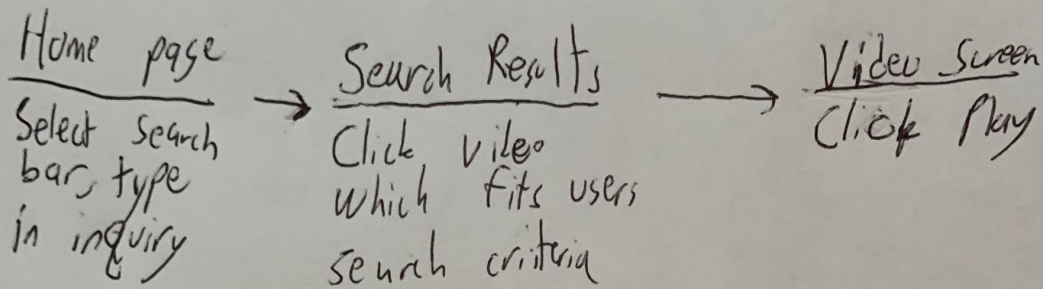 Home page
Select search
bar, type
in inquiry
→
Search Results
Click video
which fits users
search criiteria
→
Video Screen
Click Play